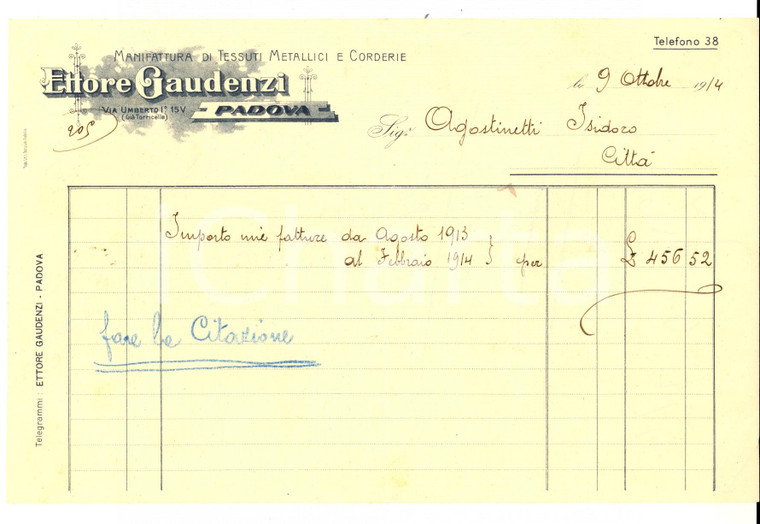 Telefono 38
MANIFATTURA DI TESSUTI METALLICI E CORDERIE
Ettore Gaudenzi
VIA UMBERTO Iº 15V
(Già Torricelle)
PADOVA
205
li 9 Ottobre 1914
Sigr. Agostinetti Isidoro
Città
Importo mie fatture da Agosto 1913
al Febbraio 1914 } per £ 456 52
fare la Citazione
Telegrammi: ETTORE GAUDENZI - PADOVA